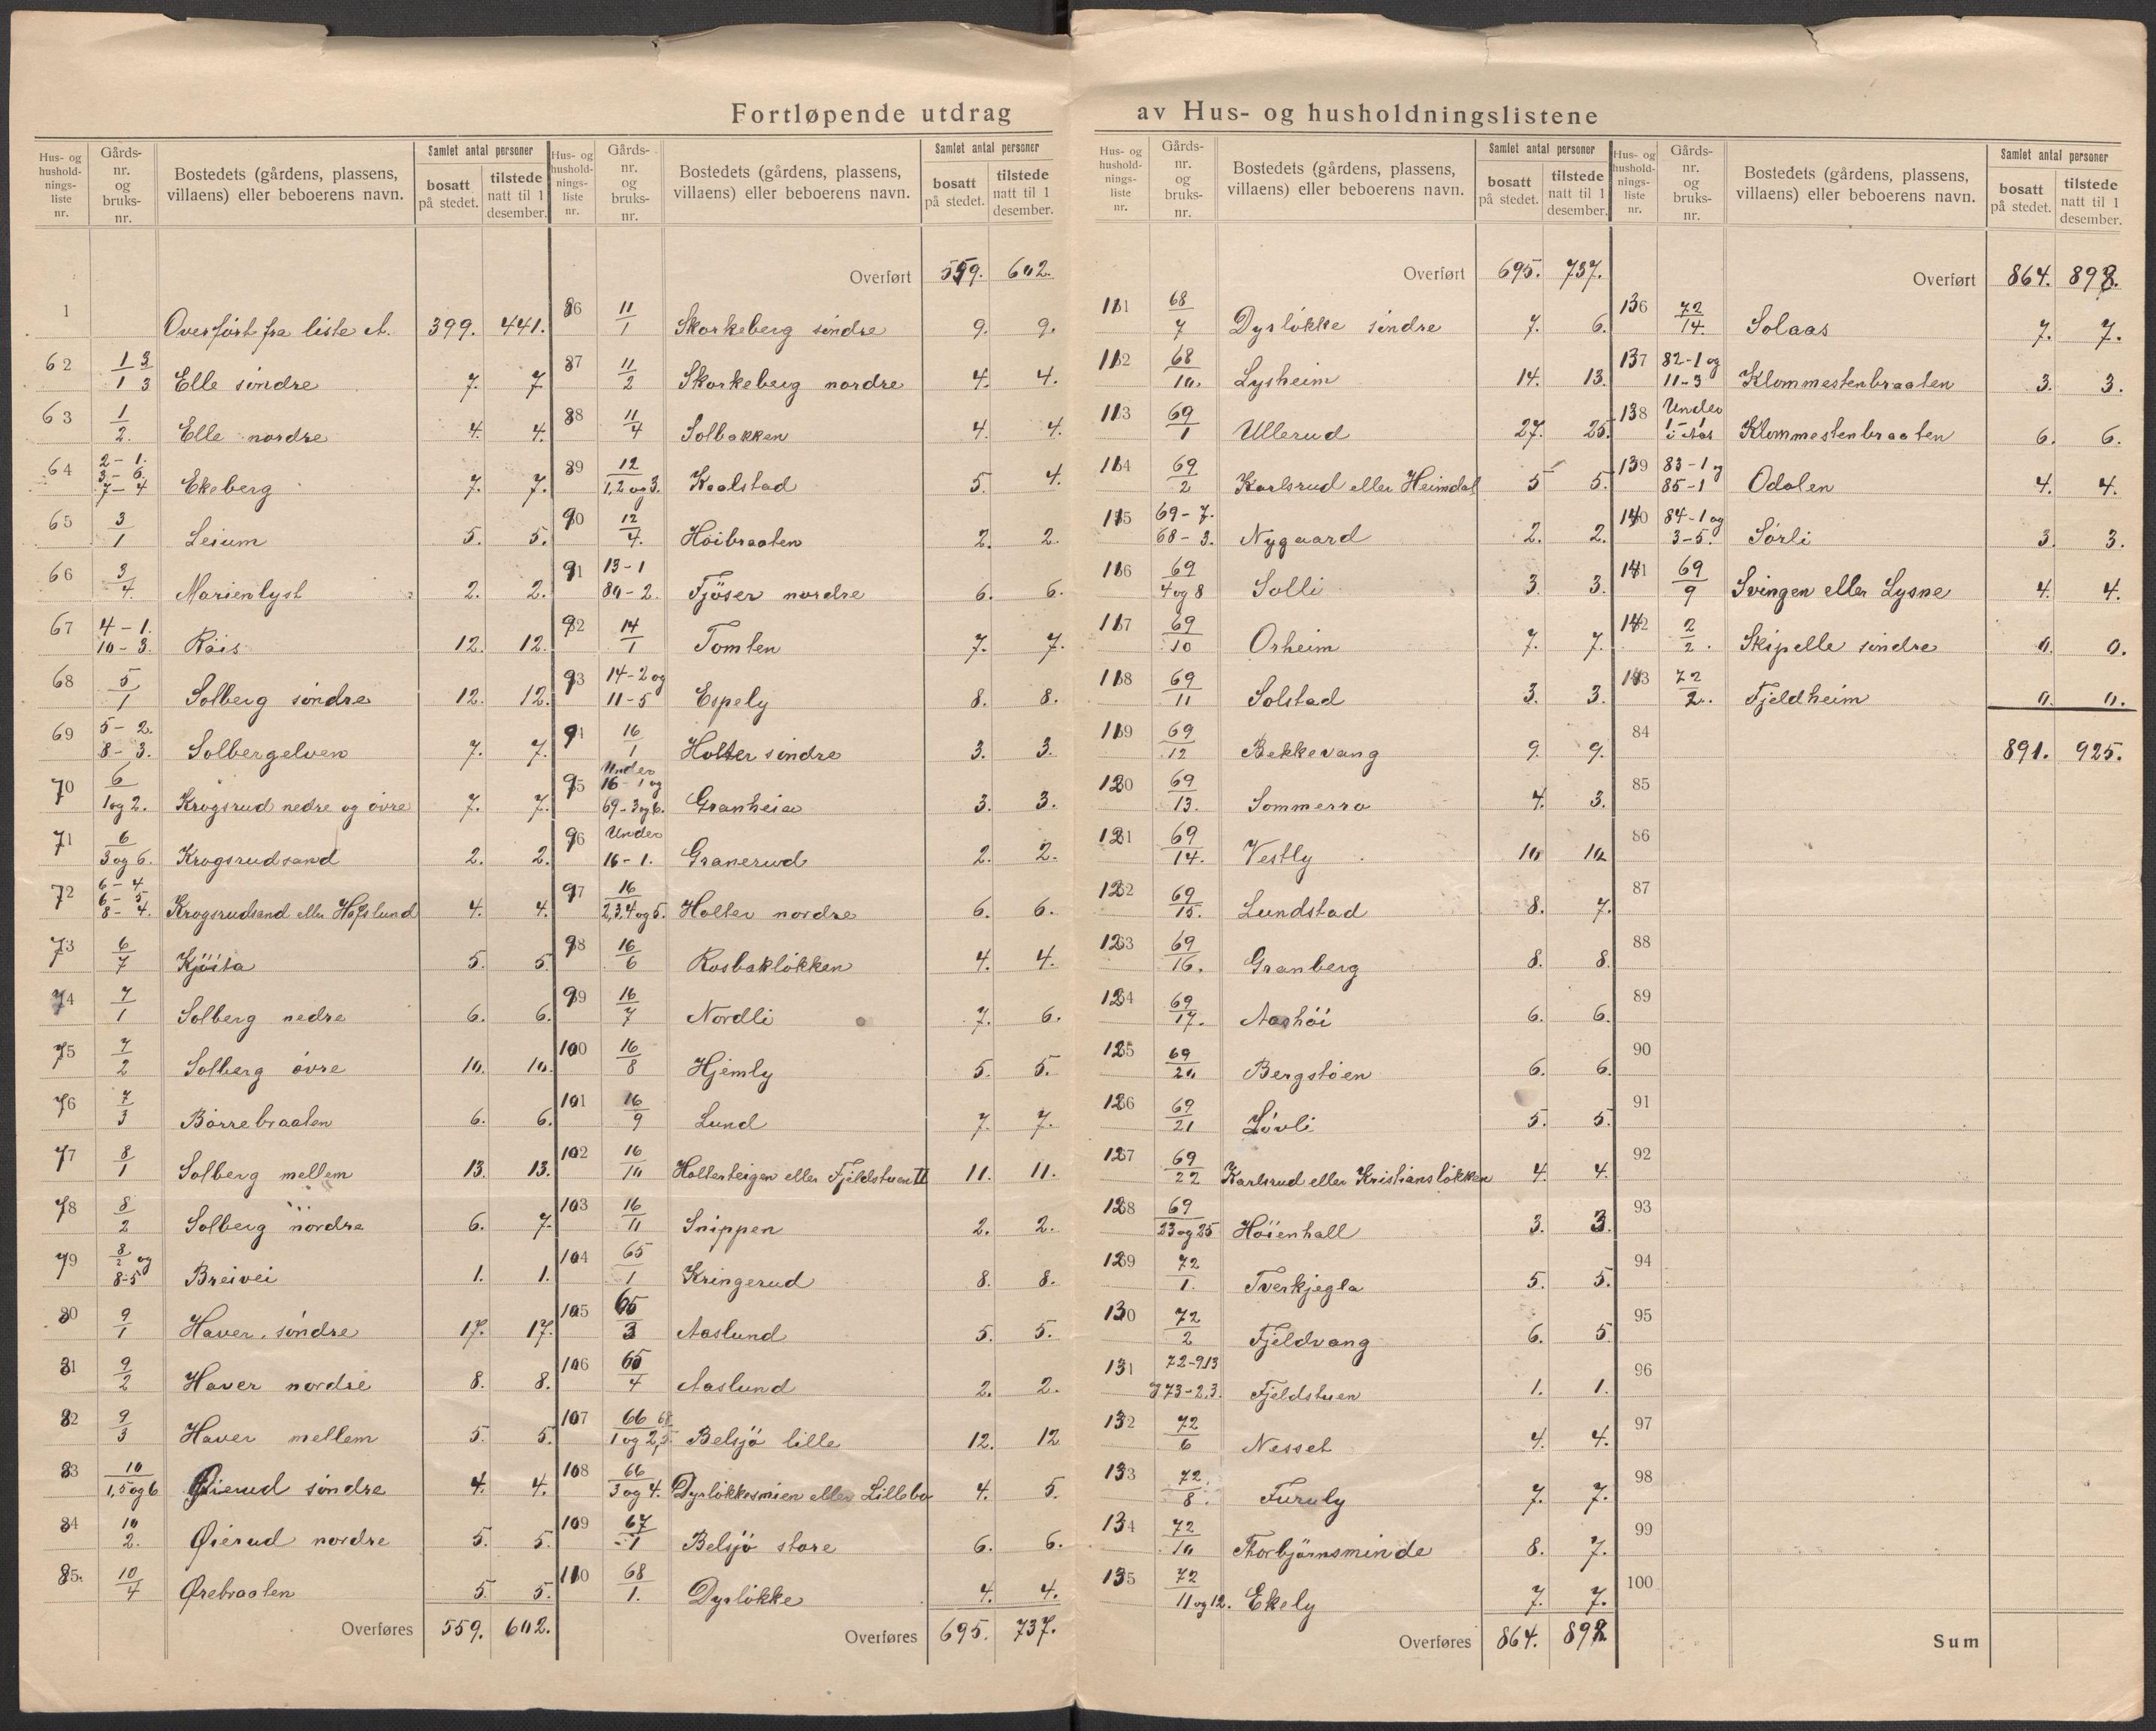 Fortløpende utdrag av Hus- og husholdningslistene
Hus- og husholdnings-liste nr. | Gårds-nr. og bruks-nr. | Bostedets (gårdens, plassens, villaens) eller beboerens navn. | Samlet antal personer | bosatt på stedet. | tilstede natt til 1 desember.
1 Overført fra liste A. 399. 441.
62 1/1 3/3 Elle söndre 7. 7
63 1/2. Elle nordre 4. 4.
64 2-1. 3-6. 7-4 Ekeberg 7. 7.
65 3/1 Leium 5. 5.
66 3/4. Marienlyst 2. 2.
67 4-1. 10-3. Räis 12. 12.
68 5/1 Solberg söndre 12. 12.
69 5-2. 8-3. Solbergelven 7. 7.
70 6/1 og 2. Krogsrud nedre og övre 7. 7.
71 6/3 og 6. Krogsrudsand 2. 2.
72 6-4. 6-5. 8-4. Krogsrudsand eller Hafslund 4. 4.
73 6/7 Kjösta 5. 5
74 7/1 Solberg nedre 6. 6.
75 7/2 Solberg övre 10. 10.
76 7/3 Börrebraaten 6. 6.
77 8/1 Solberg mellem 13. 13.
78 8/2 Solberg nordre 6. 7.
79 8/2 og 8-5 Breivei 1. 1.
80 9/1 Haver söndre 17. 17.
81 9/2 Haver nordre 8. 8.
82 9/3 Haver mellem 5. 5.
83 10/1,5 og 6 Øierud söndre 4. 4.
84 10/2. Øierud nordre 5. 5.
85. 10/4 Ørebraaten 5. 5.
Overføres 559. 602.
Hus- og husholdnings-liste nr. | Gårds-nr. og bruks-nr. | Bostedets (gårdens, plassens, villaens) eller beboerens navn. | Samlet antal personer | bosatt på stedet. | tilstede natt til 1 desember.
Overført 559. 602.
86 11/1 Skorkeberg söndre 9. 9.
87 11/2 Skorkeberg nordre 4. 4.
88 11/4 Solbakken 4. 4.
89 12/1,2 og 3. Kaalstad 5. 4.
90 12/4. Höibraaten 2. 2.
91 13-1 80-2. Fjöser nordre 6. 6.
92 14/1 Tomten 7. 7.
93 14-2 og 11-5 Espely 8. 8.
94 16/1 Holter söndre 3. 3.
95 Under 16-1 og 69-3 og 6. Granheia 3. 3.
96 Under 16-1. Granerud 2. 2.
97 16/2,3,4 og 5. Holter nordre 6. 6.
98 16/6 Rosbaklökken 4. 4.
99 16/7 Nordli 7. 6.
100 16/8 Hjemly 5. 5.
101 16/9 Lund 7. 7.
102 16/10 Holterteigen eller Fjeldstuen II 11. 11.
103 16/11 Snippen 2. 2.
104 65/1 Kringerud 8. 8.
105 65/3 Aaslund 5. 5.
106 65/4 Aaslund 2. 2.
107 66 68/1 og 2,5. Belsjö lille 12. 12
108 66/3 og 4. Dyrlökkesmien eller Lillebo 4. 5.
109 67/1 Belsjö store 6. 6.
110 68/1. Dyrlökke 4. 4.
Overføres 695. 737.
Hus- og husholdnings-liste nr. | Gårds-nr. og bruks-nr. | Bostedets (gårdens, plassens, villaens) eller beboerens navn. | Samlet antal personer | bosatt på stedet. | tilstede natt til 1 desember.
Overført 695. 737.
111 68/7 Dyrlökke söndre 7. 6.
112 68/10. Lysheim 14. 13.
113 69/1 Ullerud 27. 25.
114 69/2 Karlsrud eller Heimdal 5 5.
115 69-7. 68-3. Nygaard 2. 2.
116 69/4 og 8 Solli 3. 3.
117 69/10 Orheim 7. 7.
118 69/11 Solstad 3. 3.
119 69/12 Bekkevang 9. 9.
120 69/13. Sommerro 4. 3.
121 69/14. Vestly 10 10.
122 69/15. Lundstad 8. 7.
123 69/16. Granberg 8. 8.
124 69/17. Aashöi 6. 6.
125 69/20 Bergstöen 6. 6.
126 69/21 Lövli 5. 5.
127 69/22 Karlsrud eller Kristianslökken 4. 4.
128 69/23 og 25 Höienhall 3. 3.
129 72/1. Tverkjegla 5. 5.
130 72/2 Fjeldvang 6. 5
131 72-9,13 73-2.3. Fjeldstuen 1. 1.
132 72/6 Nesset 4. 4.
133 72/8. Furuly 7. 7.
134 72/10 Thorbjörnsminde 8. 7.
135 72/11 og 12. Ekely 7. 7.
Overføres 864. 898
Hus- og husholdnings-liste nr. | Gårds-nr. og bruks-nr. | Bostedets (gårdens, plassens, villaens) eller beboerens navn. | Samlet antal personer | bosatt på stedet. | tilstede natt til 1 desember.
Overført 864. 898.
136 72/14. Solaas 7. 7.
137 82-1 og 11-3 Klommestenbraaten 3. 3.
138 Under 1-1 i Aas Klommestenbraaten 6. 6.
139 83-1 og 85-1 Odalen 4. 4.
140 84-1 og 3-5. Sörli 3. 3.
141 69/9 Svingen eller Lysne 4. 4.
142 2/2. Skipelle söndre 0. 0.
143 72/2. Fjeldheim 0. 0.
84 891. 925.
85
86
87
88
89
90
91
92
93
94
95
96
97
98
99
100
Sum